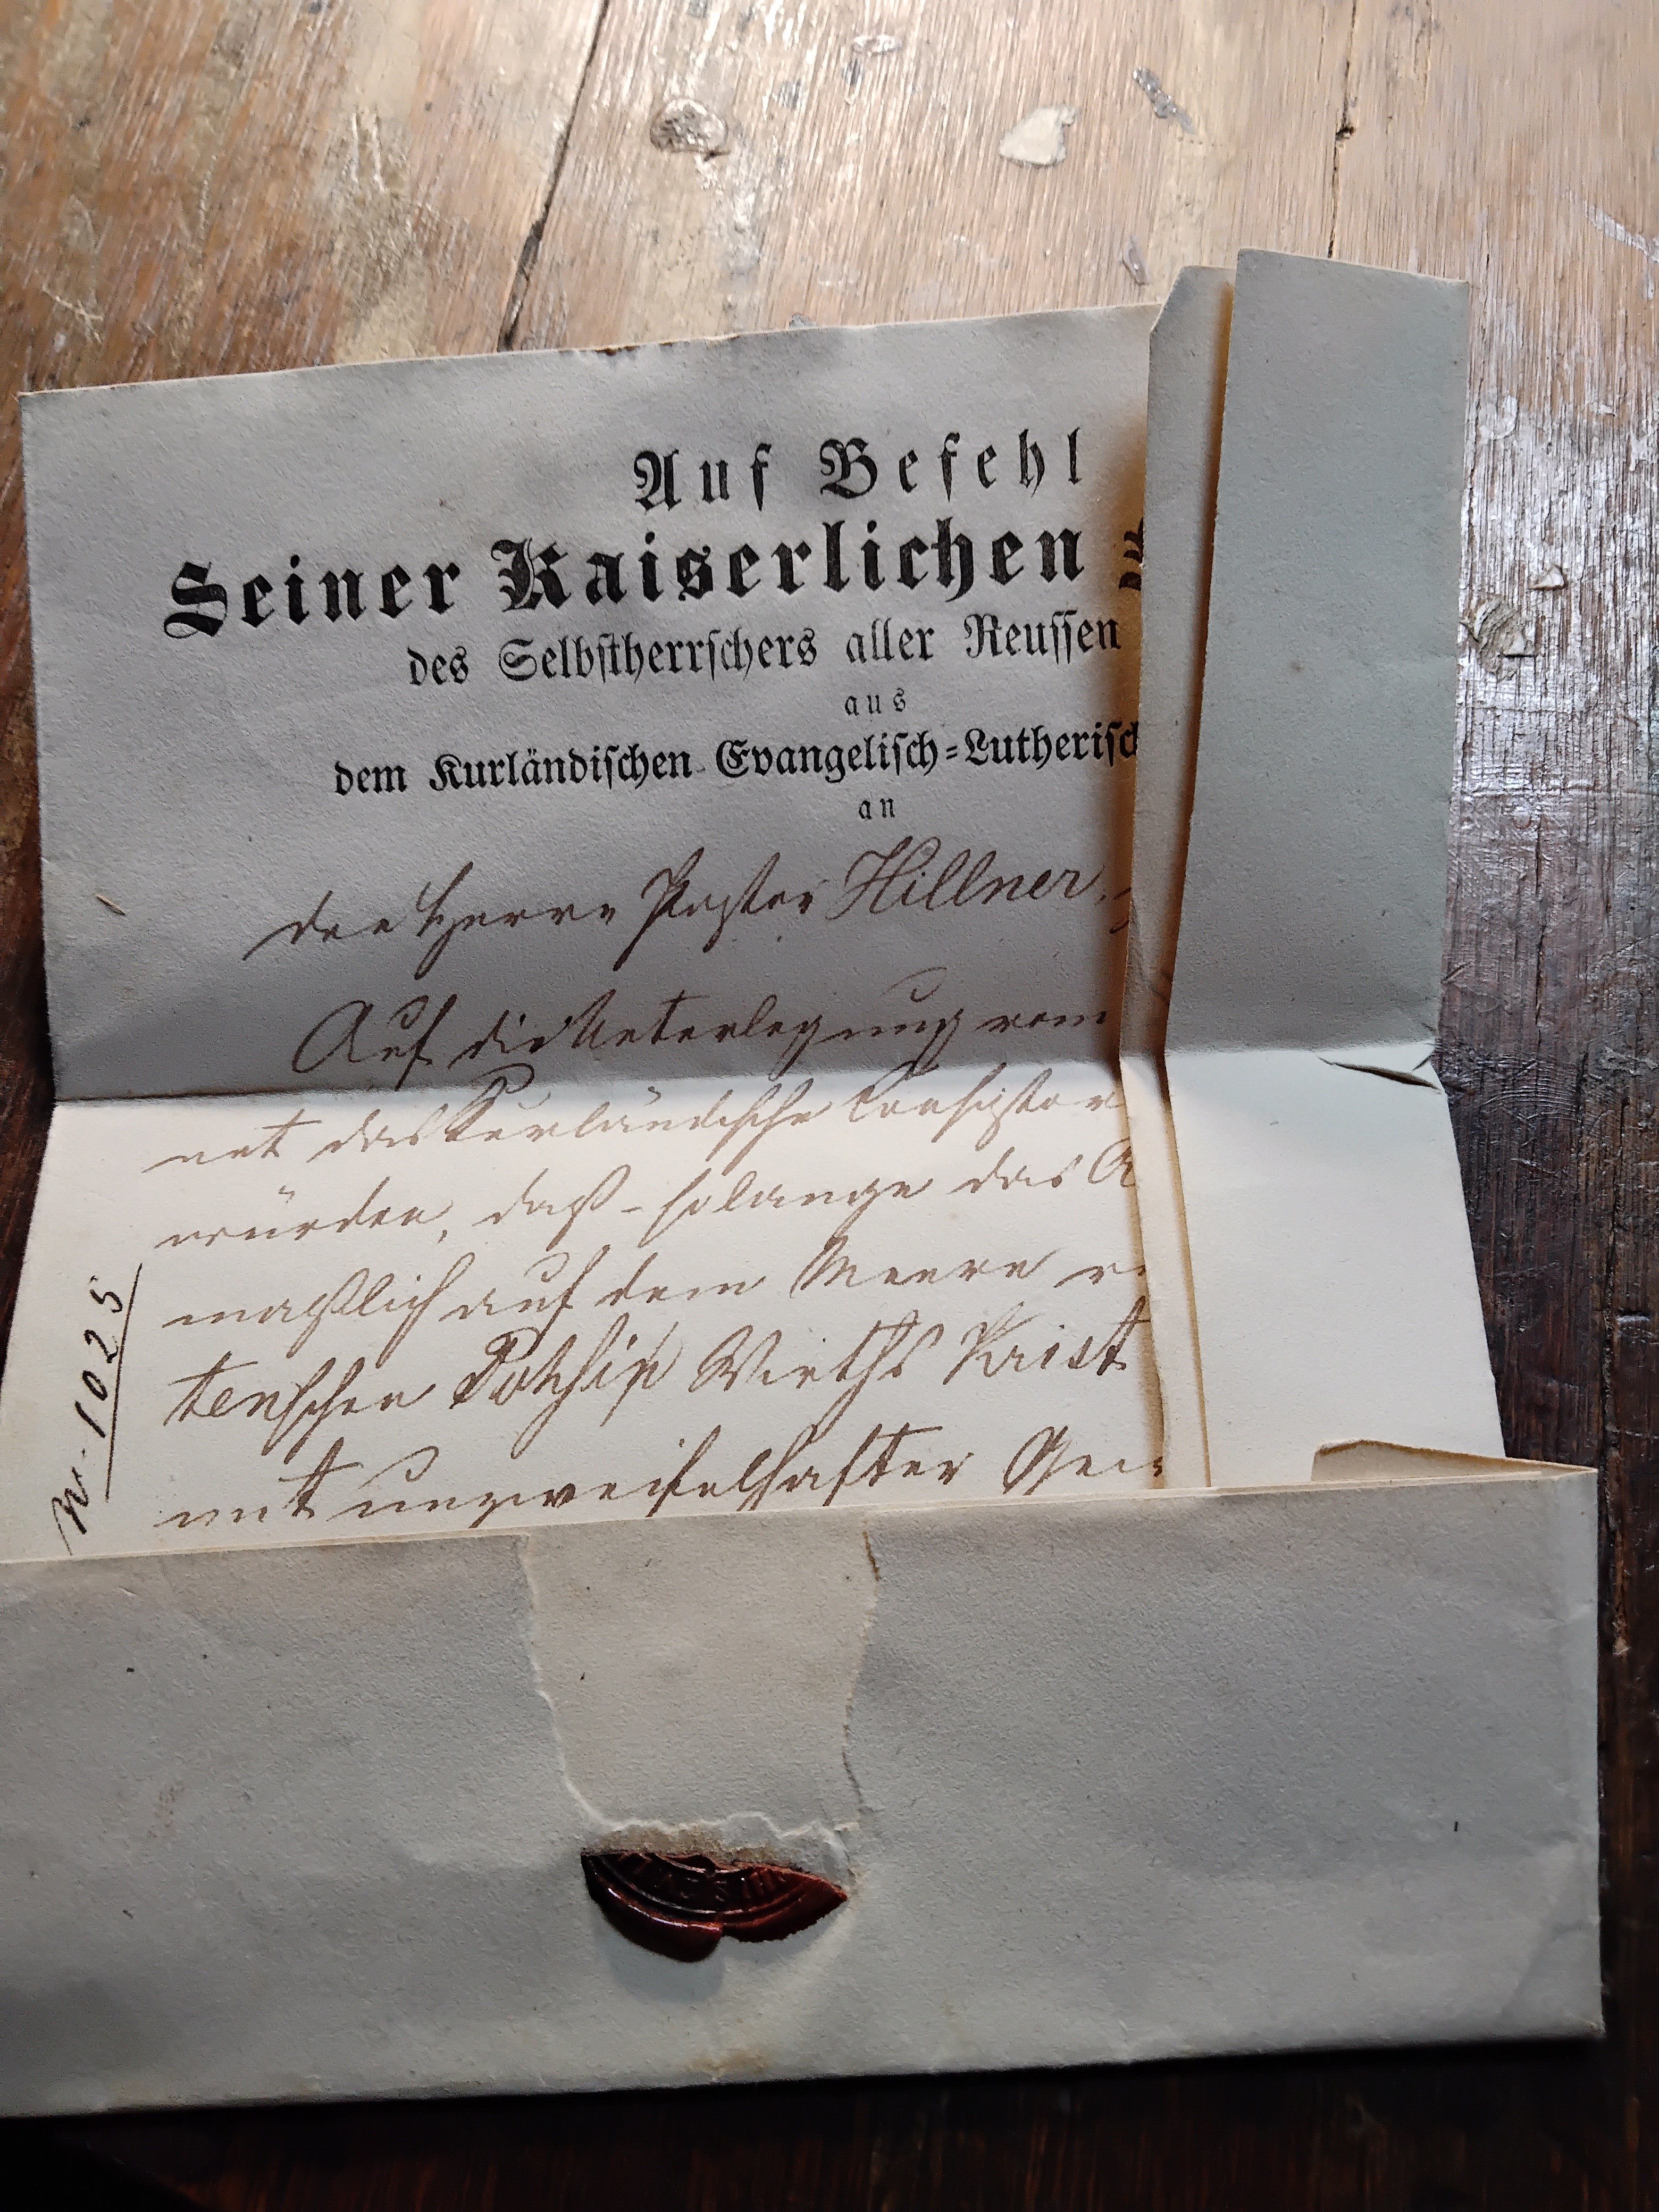 Auf Befehl
Seiner Kaiserlichen
des Selbstherrschers aller Reussen
aus
dem Kurländischen Evangelisch=Lutherisch
an
den Herrn Pastor Hillner,
Auf die Unterlegung vom
net das Kurländische Consistor
würden, daß - solange das A
maßlich auf dem Meere
tenschen Wirths Krist
mit unzweifelhafter
Nr. 1025